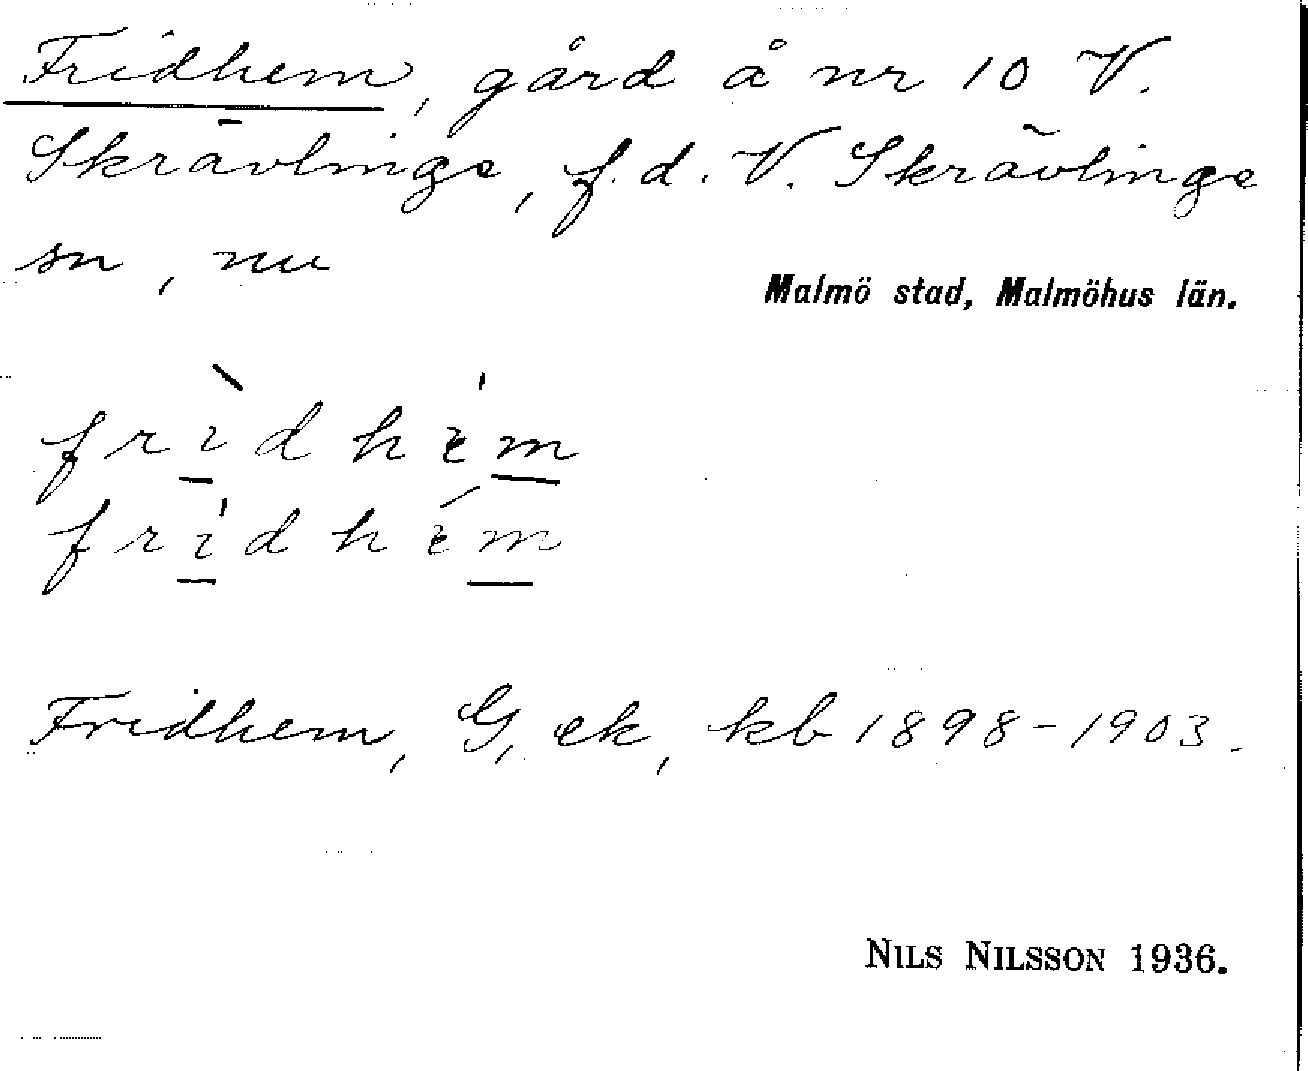 Fridhem, gård å nr 10 V.
Skrävlinge, f.d. V. Skrävlinge
sn, nu
Malmö stad, Malmöhus län.
fridhem
fridhem
Fridhem, G, ek, kb 1898-1903.
NILS NILSSON 1936.